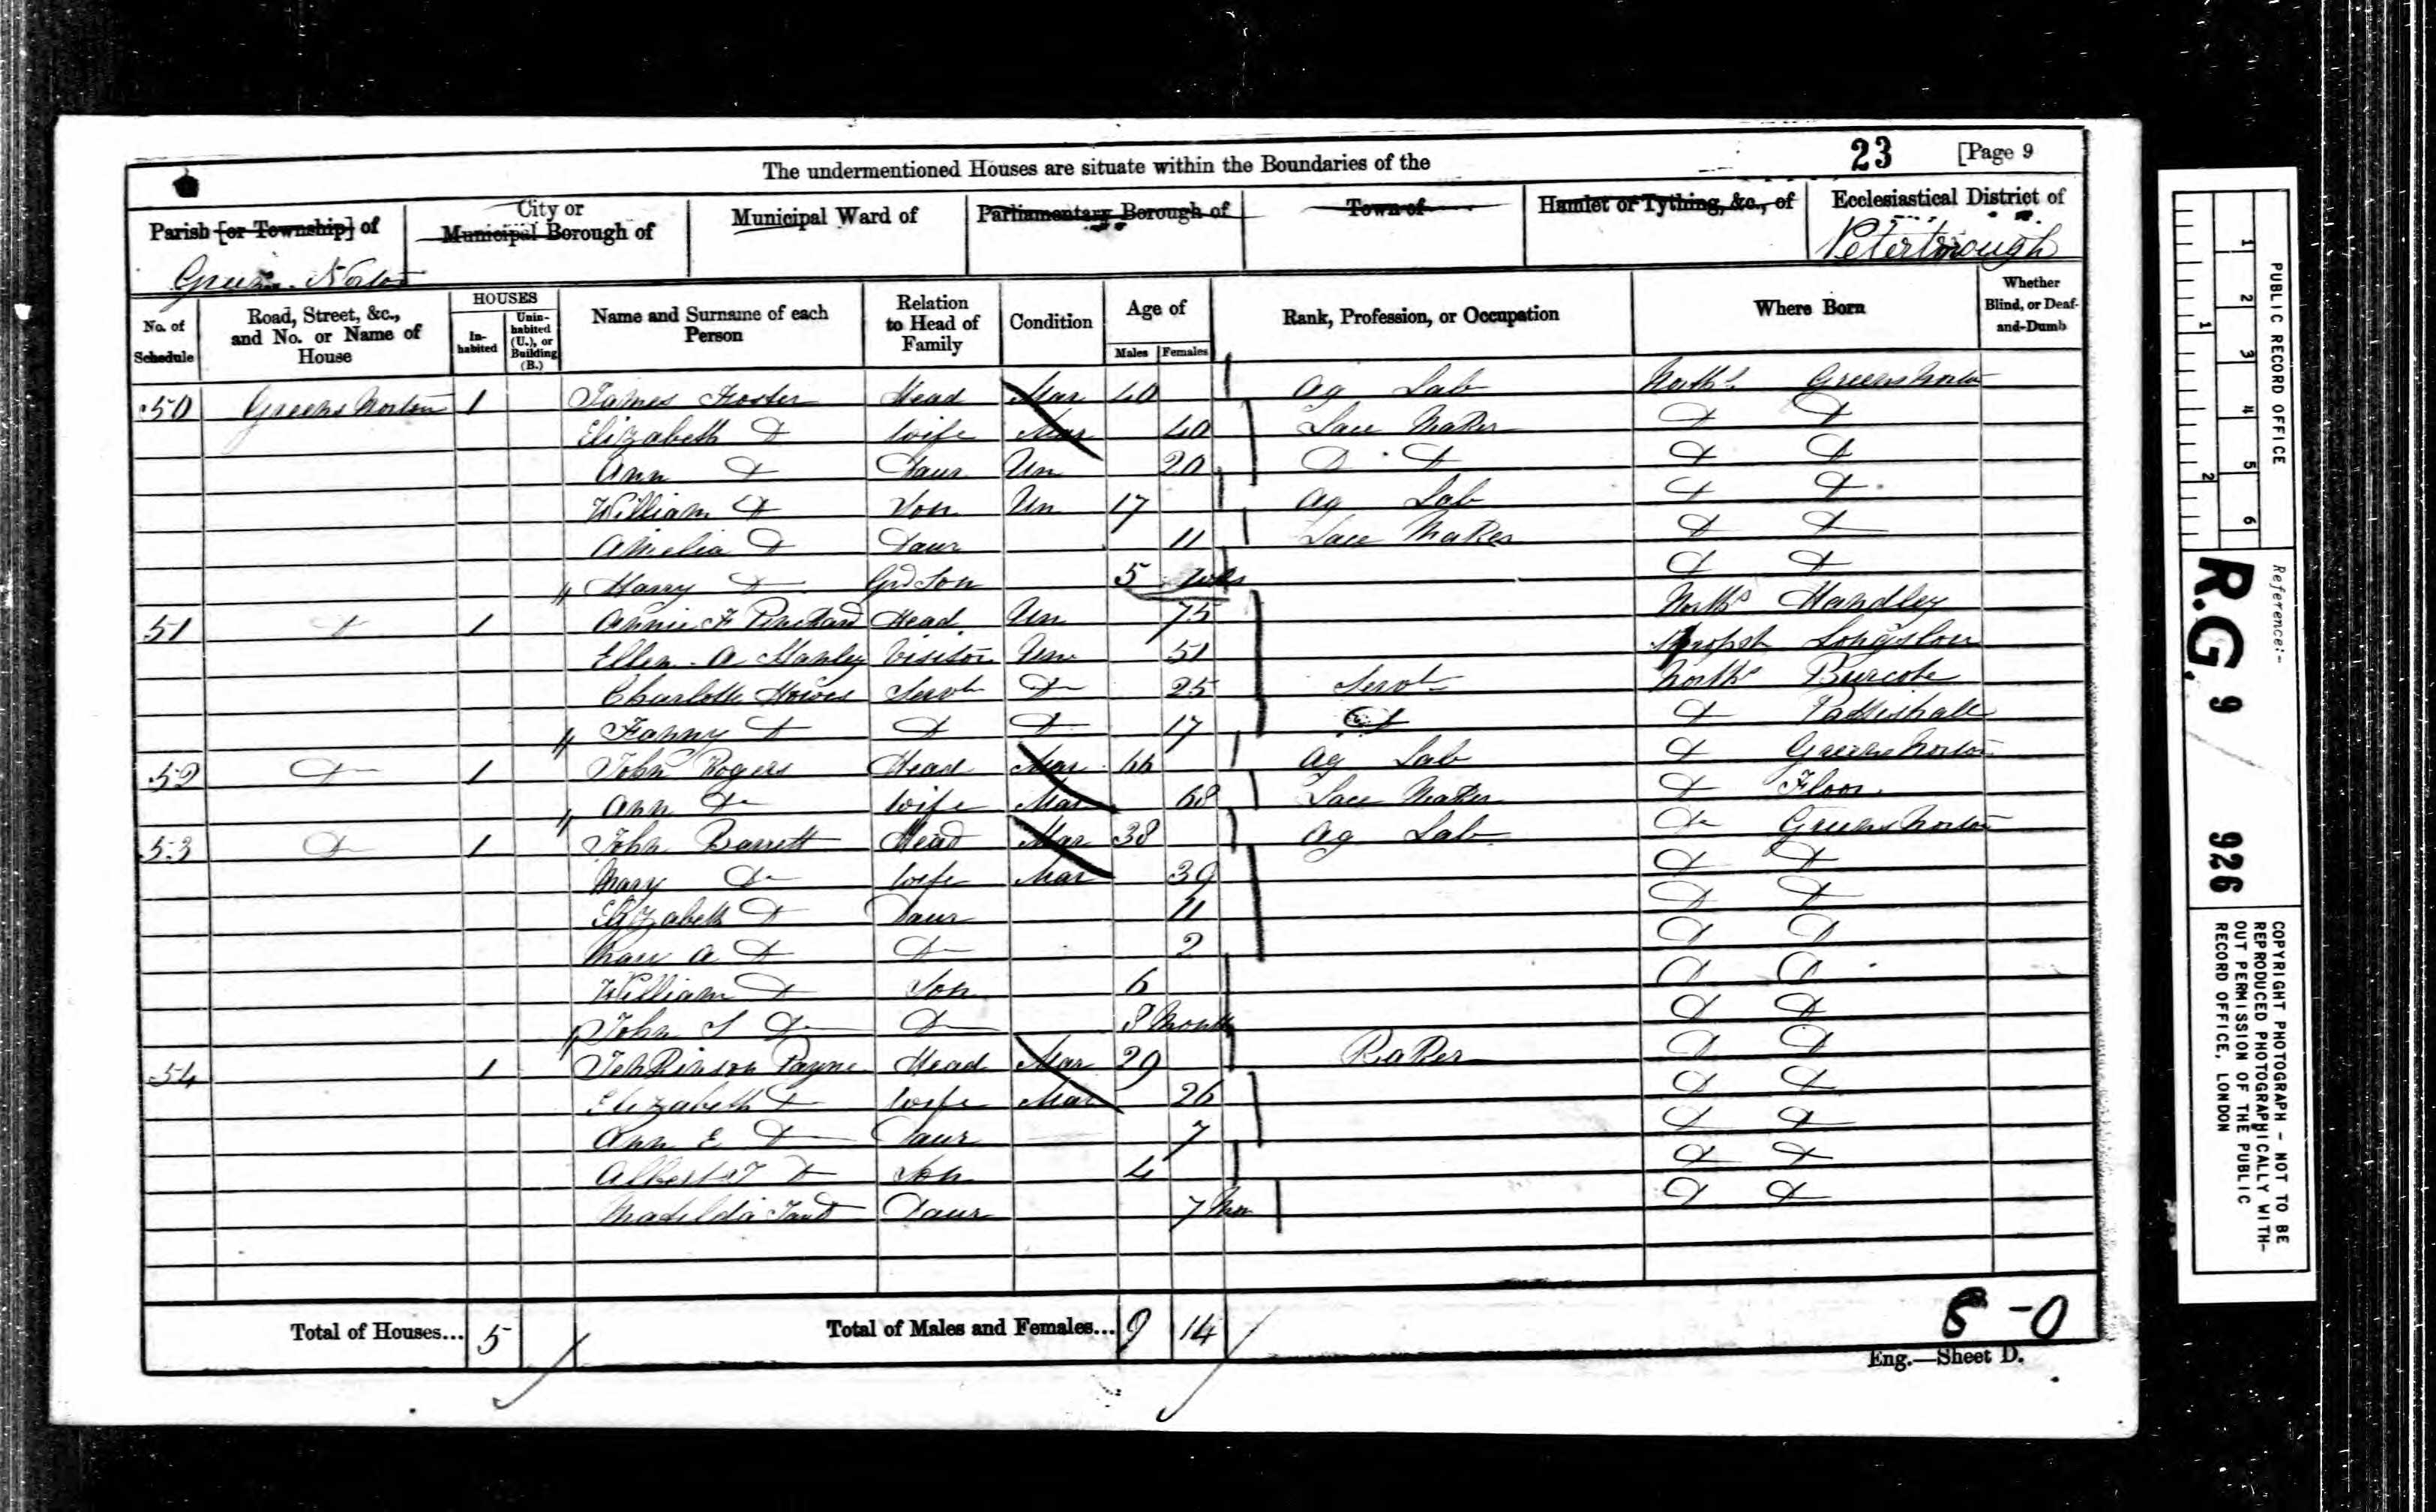 The undermentioned Houses are situate within the Boundaries of the
23
[Page 9
Parish [or Township] of
City or Municipal Borough of
Municipal Ward of
Parliamentary Borough of
Town of
Hamlet or Tything, &c., of
Ecclesiastical District of
Greens Norton
Peterborough
No. of Schedule
Road, Street, &c., and No. or Name of House
HOUSES
In-habited
Unin-habited (U.), or Building (B.)
Name and Surname of each Person
Relation to Head of Family
Condition
Age of
Males
Females
Rank, Profession, or Occupation
Where Born
Whether Blind, or Deaf-and-Dumb
50 Greens Norton 1 James Foster Head Mar 40 Ag Lab North Greens Norton
Elizabeth Do Wife Mar 40 Lace Maker Do Do
Ann Do Daur Un 20 Do Do Do Do
William Do Son Un 17 Ag Lab Do Do
Amelia Do Daur 11 Lace Maker Do Do
Harry Do Grd Son 5 Do Do
51 Do 1 Annie F Head Un 75 North Handley
Ellen A Manley Visitor Un 51
Charlotte Howes Servt Do 25 Servt North Burcote
Fanny Do Do Do 17 Do Do Pattishall
52 Do 1 John Rogers Head Mar 66 Ag Lab Do Greens Norton
Ann Do Wife Mar 68 Lace Maker Do Floor
53 Do 1 John Barrett Head Mar 38 Ag Lab Do Greens Norton
Mary Do Wife Mar 39 Do Do
Elizabeth Do Daur 11 Do Do
Mary A Do Do 2 Do Do
William Do Son 6 Do Do
John S Do Do 8 Months Do Do
54 1 Jenkinson Payne Head Mar 29 Baker Do Do
Elizabeth Do Wife Mar 26 Do Do
Ann E Do Daur 7 Do Do
Albert Do Son 4 Do Do
Matilda Daur 7 Mon Do Do
Total of Houses... 5
Total of Males and Females... 9 14
8 -0
Eng.—Sheet D.
PUBLIC RECORD OFFICE
1 2 3 4 5 6
1 2
Reference:-
R.G. 9 / 926
COPYRIGHT PHOTOGRAPH - NOT TO BE
REPRODUCED PHOTOGRAPHICALLY WITH-
OUT PERMISSION OF THE PUBLIC
RECORD OFFICE, LONDON